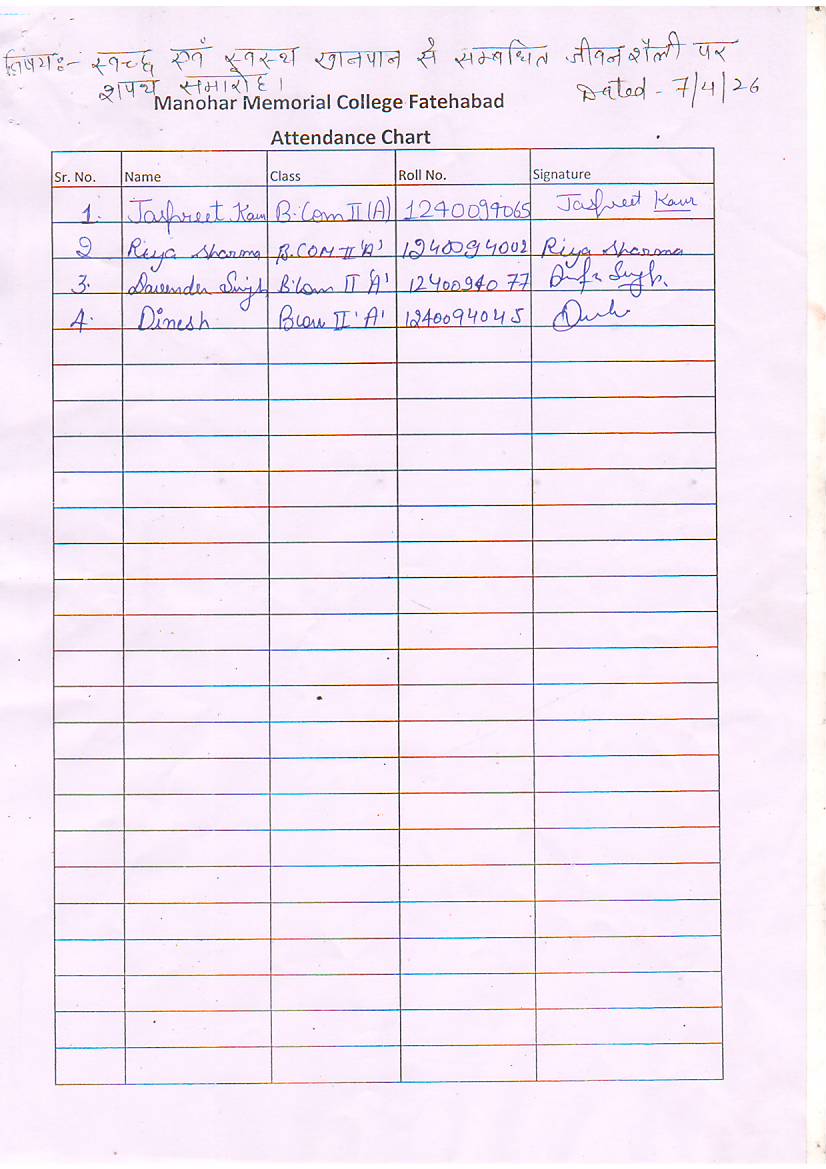 विषय:- स्वच्छ एवं स्वस्थ खानपान से सम्बधित जीवन शैली पर
शपथ समारोह।
Dated - 7/4/26
Manohar Memorial College Fatehabad
Attendance Chart
Sr. No. Name Class Roll No. Signature
1. Jaspreet Kaur B.Com II (A) 1240094065 Jaspreet Kaur
2 Riya Sharma B.COM II 'A' 1240094002 Riya Sharma
3. Davender Singh B.Com II 'A' 1240094077 Singh.
4. Dinesh B.Com II 'A' 1240094045